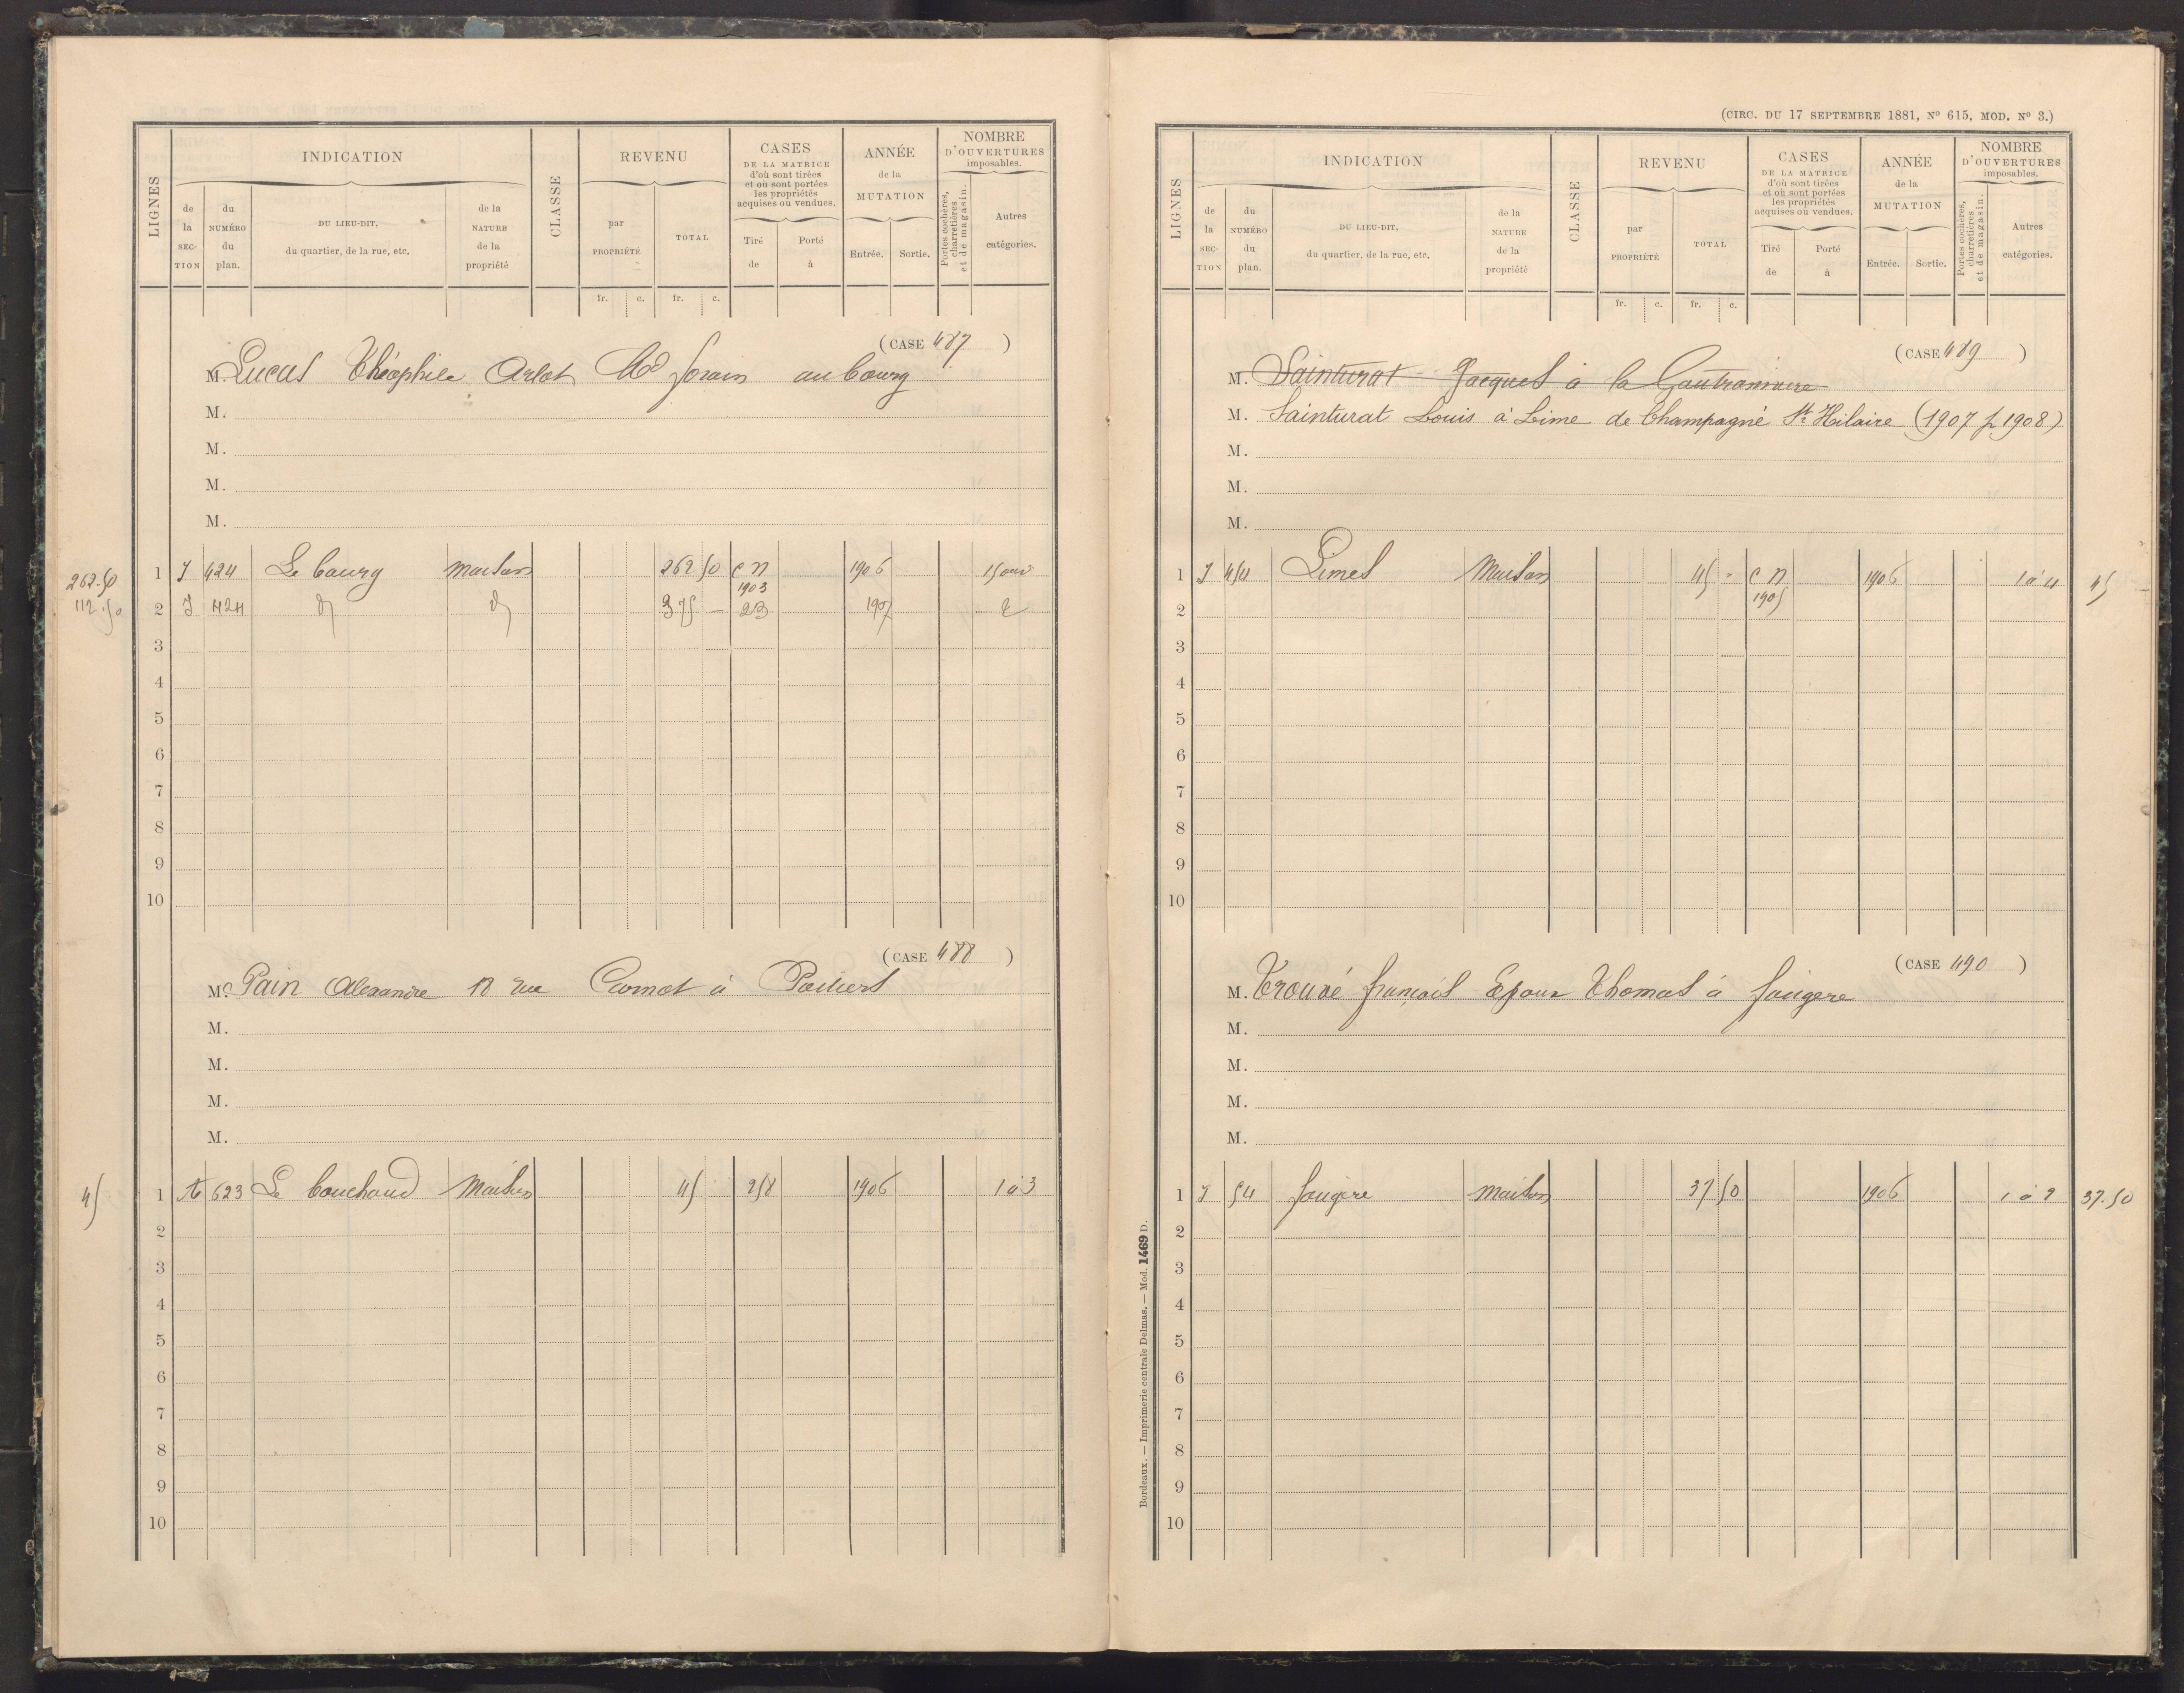 LIGNES
INDICATION
de la SECTION
du NUMÉRO du plan.
DU LIEU-DIT, du quartier, de la rue, etc.
de la NATURE de la propriété
CLASSE
REVENU
par PROPRIÉTÉ
TOTAL
fr. c. fr. c.
CASES DE LA MATRICE d'où sont tirées et où sont portées les propriétés acquises ou vendues.
Tiré de
Porté à
ANNÉE de la MUTATION
Entrée. Sortie.
NOMBRE D'OUVERTURES imposables.
Portes cochères, charretières et de magasin.
Autres catégories.
(CASE 487)
M. Lucas Théophile Arlot Md forain au bourg
M.
M.
M.
M.
262.50 1 J 424 Le bourg maison 262 50 C N 1903 1906 15 ouv
112.50 2 J 424 d d 375 - 23 1907
3
4
5
6
7
8
9
10
(CASE 488)
M. Pain Alexandre 18 rue Carnot à Poitiers
M.
M.
M.
M.
45 1 623 Le bouchaud Maison 45 258 1906 1 à 3
2
3
4
5
6
7
8
9
10
(CIRC. DU 17 SEPTEMBRE 1881, No 615, MOD. No 3.)
LIGNES
INDICATION
de la SECTION
du NUMÉRO du plan.
DU LIEU-DIT, du quartier, de la rue, etc.
de la NATURE de la propriété
CLASSE
REVENU
par PROPRIÉTÉ
TOTAL
fr. c. fr. c.
CASES DE LA MATRICE d'où sont tirées et où sont portées les propriétés acquises ou vendues.
Tiré de
Porté à
ANNÉE de la MUTATION
Entrée. Sortie.
NOMBRE D'OUVERTURES imposables.
Portes cochères, charretières et de magasin.
Autres catégories.
(CASE 489)
M. Sainturat Jacques à la
M. Sainturat Louis à Lime de Champagné St Hilaire (1907 p 1908)
M.
M.
M.
1 J 454 Limes Maison 45 - C N 1905 1906 1 à 4 45
2
3
4
5
6
7
8
9
10
(CASE 490)
M. Trouvé françois Epoux Thomas à fougere
M.
M.
M.
M.
1 J 54 fougère maison 37 50 1906 1 à 2 37.50
2
3
4
5
6
7
8
9
10
Bordeaux. — Imprimerie centrale Delmas. — Mod. 1469 D.